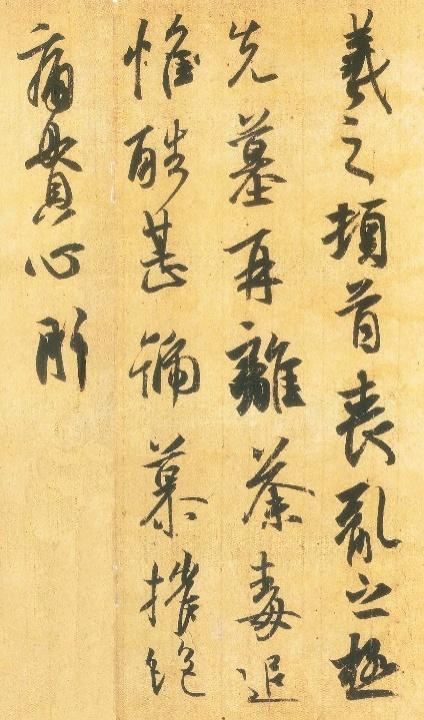 羲之頓首喪亂之極
先墓再離荼毒追
惟酷甚號慕摧絶
痛貫心肝